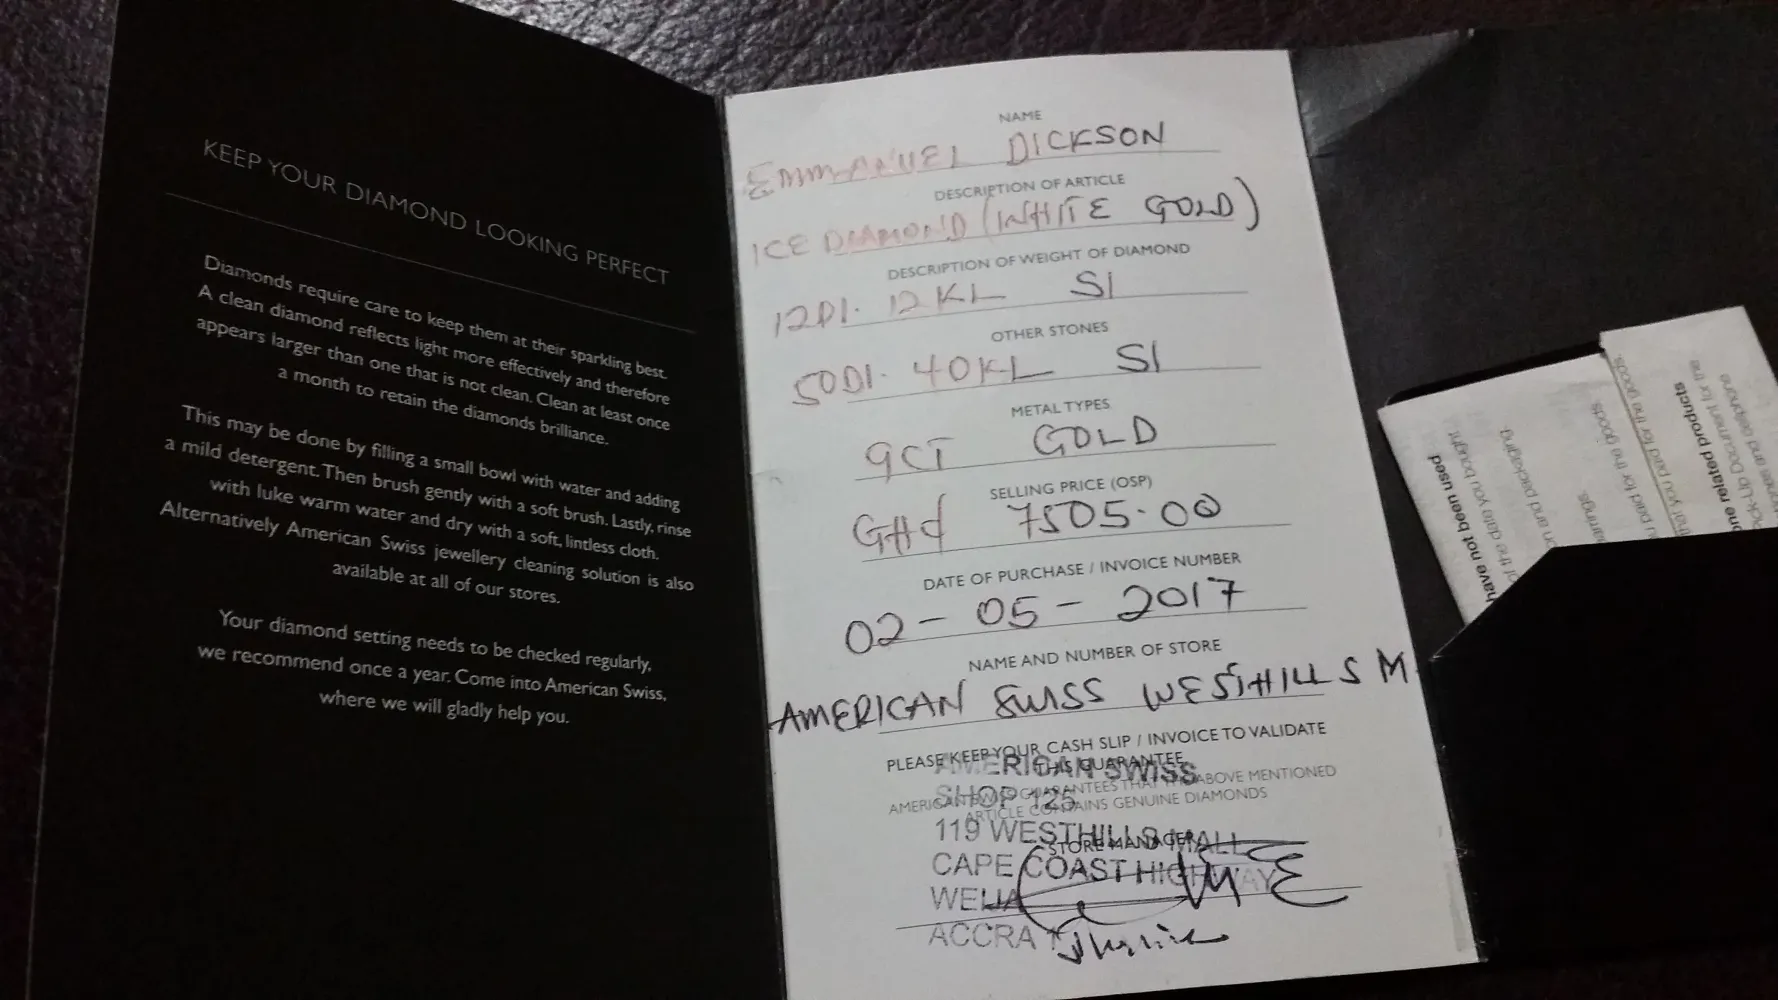 KEEP YOUR DIAMOND LOOKING PERFECT
Diamonds require care to keep them at their sparkling best.
A clean diamond reflects light more effectively and therefore
appears larger than one that is not clean. Clean at least once
a month to retain the diamonds brilliance.
This may be done by filling a small bowl with water and adding
a mild detergent. Then brush gently with a soft brush. Lastly, rinse
with luke warm water and dry with a soft, lintless cloth.
Alternatively American Swiss jewellery cleaning solution is also
available at all of our stores.
Your diamond setting needs to be checked regularly,
we recommend once a year. Come into American Swiss,
where we will gladly help you.
NAME
EMMANUEL DICKSON
DESCRIPTION OF ARTICLE
ICE DIAMOND (WHITE GOLD)
DESCRIPTION OF WEIGHT OF DIAMOND
12DI. 12KL SI
OTHER STONES
50DI. 40KL SI
METAL TYPES
9CT GOLD
SELLING PRICE (OSP)
GH¢ 7505.00
DATE OF PURCHASE / INVOICE NUMBER
02 - 05 - 2017
NAME AND NUMBER OF STORE
AMERICAN SWISS WESTHILLS M
PLEASE KEEP YOUR CASH SLIP / INVOICE TO VALIDATE
THIS GUARANTEE
AMERICAN SWISS
AMERICAN SWISS GUARANTEES THAT THE ABOVE MENTIONED
SHOP 125
ARTICLE CONTAINS GENUINE DIAMONDS
119 WESTHILLS MALL
STORE MANAGER
CAPE COAST HIGHWAY
WEIJA
ACCRA
have not been used
of the date you bought
on and packaging.
earrings.
u paid for the goods.
that you paid for the goods.
one related products
ock-Up Document for the